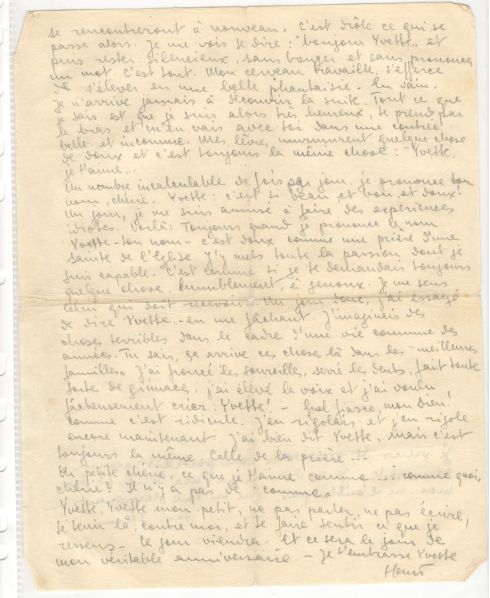 se rencontreront à nouveau. C'est drôle ce qui se
passe alors. Je me vois se dire: "bonjour Yvette" et
puis rester silencieux, sans bouger et sans prononcer
un mot. C'est tout. Mon cerveau travaille, s'efforce
de s'élever en une belle phantaisie. En vain.
Je n'arrive jamais à découvrir la suite. Tout ce que
je sais est que je suis alors très heureux, te prends par
le bras et m'en vais avec toi dans une contrée
belle et inconnue. Mes lèvres murmurent quelque chose
de doux et c'est toujours la même chose: "Yvette,
je t'aime...
Un nombre incalculable de fois par jour, je prononce ton
nom, chérie. Yvette: c'est si beau et bon et doux!
Un jour, je me suis amusé à faire des expériences
idiotes. Voilà: Toujours quand je prononce le nom
Yvette - ton nom - c'est doux comme une prière d'une
sainte de l'Eglise. J'y mets toute la passion dont je
suis capable. C'est comme si je te demandais toujours
quelque chose, humblement, à genoux. Je me sens
celui qui doit recevoir. Un jour donc, j'ai essayé
de dire Yvette - en me fâchant. J'imaginais des
choses terribles dans le cadre d'une vie commune des
années. Tu sais, ça arrive ces choses là dans les "meilleures
familles". J'ai froncé les sourcilles, serré les dents, fait toute
sorte de grimaces, j'ai élevé la voix et j'ai voulu
fâcheusement crier: Yvette! - Quel fiasco, mon Dieu!
Comme c'est ridicule. J'en rigolais et j'en rigole
encore maintenant. J'ai bien dit Yvette, mais c'est
toujours la même, celle de la prière...
Oh petite chérie, ce que je t'aime comme... comme quoi,
chérie? Il n'y a pas de "comme".
Yvette, Yvette mon petit, ne pas parler, ne pas écrire,
te tenir là, contre moi, et te faire sentir ce que je
ressens - le jour viendra. Et ce sera le jour de
mon véritable anniversaire - Je t'embrasse Yvette